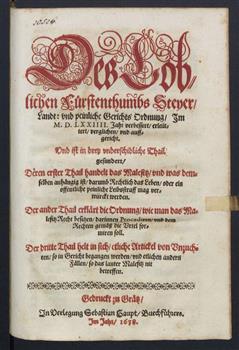 Des Löb-
lichen Fürstenthumbs Steyer/
Landt: vnd peinliche Gerichts Ordnung/ Im
M. D. LXXIIII. Jahr verbessert/ erleüt-
tert/ verglichen/ vnd auff-
gericht,
Vnd ist in drey vnderschidliche Thail
gesundert/
Deren erster Thail handelt das Malefitz/ vnd was dem-
selben anhängig ist/ darumb Rechtlich das Leben/ oder ein
offentliche peinliche Leibsstraff mag ver-
würckt werden.
Der ander Thail erklärt die Ordnung/ wie man das Ma-
lefitz Recht besitzen/ darinnen Procedirn, vnd dem
Rechten gemäß die Vrtel for-
miren soll.
Der dritte Thail helt in sich/ etliche Artickel von Vnzuch-
ten/ so in Gericht begangen werden/ vnd etlichen andern
Fällen/ so das lauter Malefitz nit
betreffen.
Gedruckt zu Grätz/
In Verlegung Sebastian Haupt/ Buchführers.
Im Jahr/ 1638.